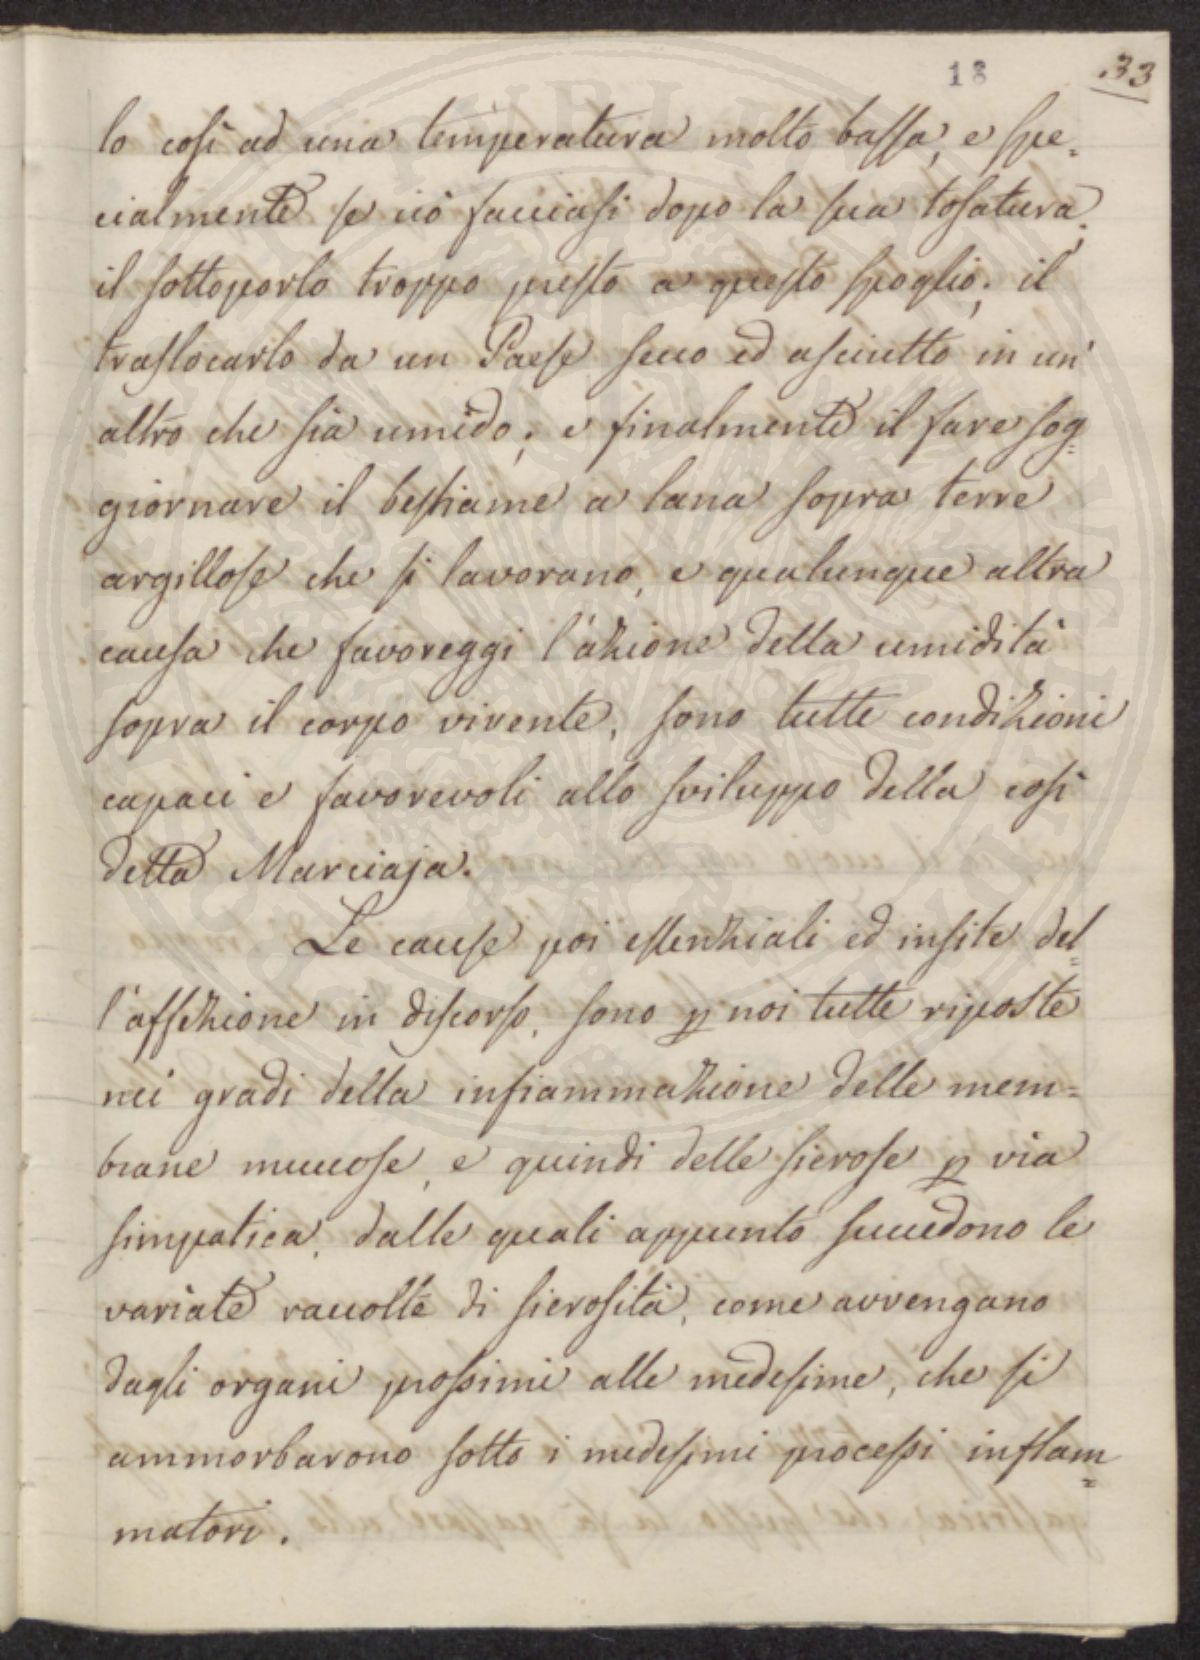 18 33
lo così ad una temperatura molto bassa, e spe=
cialmente se ciò facciasi dopo la sua tosatura;
il sottoporlo troppo presto a questo spoglio; il
traslocarlo da un Paese secco ed asciutto in un'
altro che sia umido; e finalmente il fare sog=
giornare il bestiame a lana sopra terre
argillose che si lavorano, e qualunque altra
causa che favoreggi l'azione della umidità
sopra il corpo vivente, sono tutte condizioni
capaci e favorevoli allo sviluppo della così
detta Marciaja.
Le cause poi essenziali ed insite del=
l'affezione in discorso, sono p noi tutte riposte
nei gradi della infiammazione delle mem=
brane muccose, e quindi delle sierose p via
simpatica, dalle quali appunto succedono le
variate raccolte di sierosità, come avvengano
dagli organi prossimi alle medesime, che si
ammorbarono sotto i medesimi processi inflam=
matori.